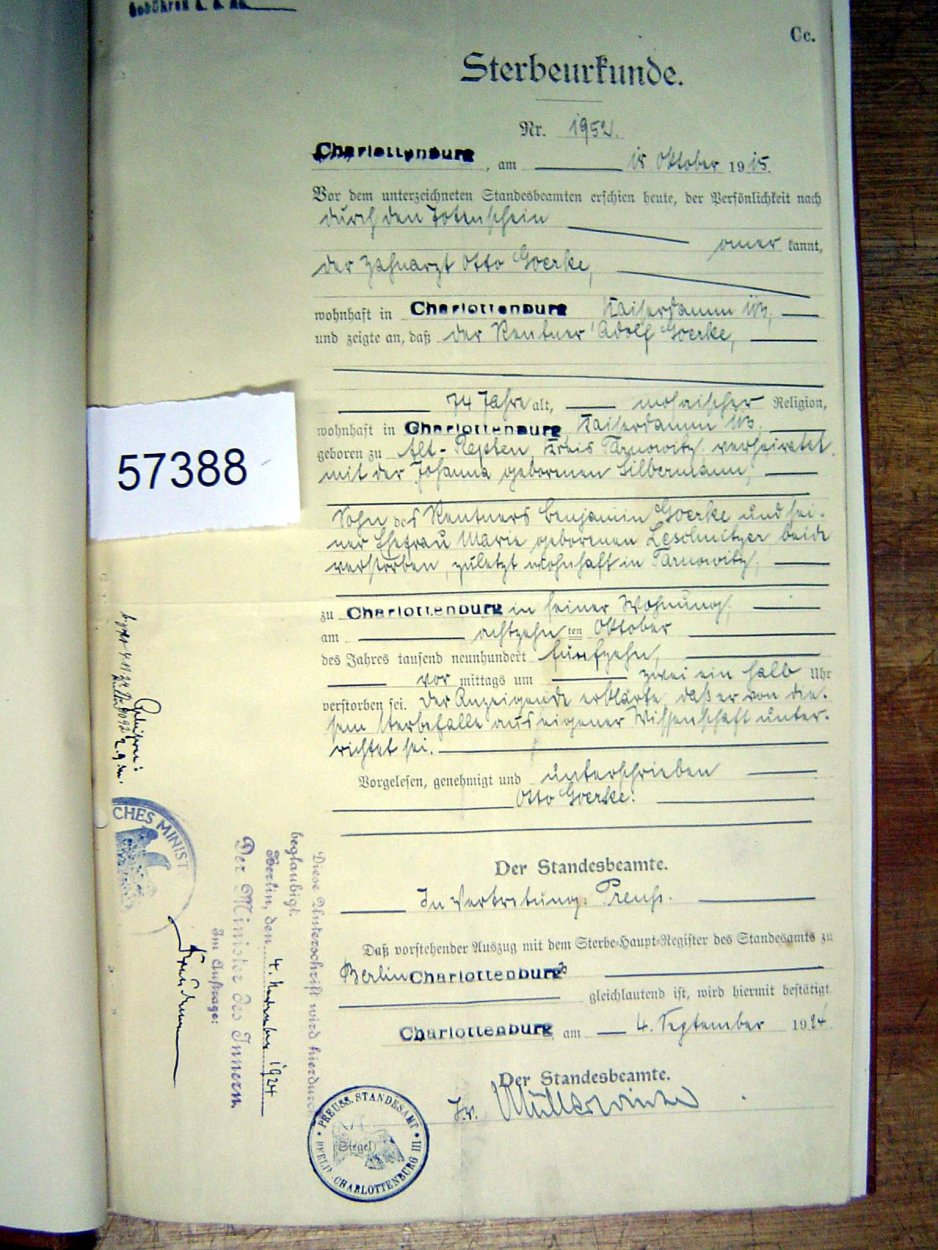 Gebühren
Cc.
Sterbeurkunde.
Nr. 1952.
Charlottenburg, am 18. Oktober 1915.
Vor dem unterzeichneten Standesbeamten erschien heute, der Persönlichkeit nach
durch den Totenschein
aner kannt,
der Zahnarzt Otto Goerke,
wohnhaft in Charlottenburg Kaiserdamm 113,
und zeigte an, daß der Rentner Adolf Goerke,
74 Jahre alt, mosaischer Religion,
wohnhaft in Charlottenburg Kaiserdamm 113.
geboren zu Alt-Repten, Kreis Tarnowitz, verheiratet
mit der Johanna geborenen Silbermann,
Sohn des Rentners Benjamin Goerke und sei-
ner Ehefrau Marie geborenen Leschnitzer beide
verstorben, zuletzt wohnhaft in Tarnowitz,
zu Charlottenburg in seiner Wohnung.
am achtzehn ten Oktober
des Jahres tausend neunhundert fünfzehn,
vor mittags um zwei ein halb Uhr
verstorben sei. Der Anzeigende erklärte, daß er von die-
sem Sterbefalle aus eigener Wissenschaft unter-
richtet sei.
Vorgelesen, genehmigt und unterschrieben
Otto Goerke.
Der Standesbeamte.
In Vertretung: Preuß.
Daß vorstehender Auszug mit dem Sterbe-Haupt-Register des Standesamts zu
Berlin Charlottenburg 3
gleichlautend ist, wird hiermit bestätigt
Charlottenburg, am 4. September 1924.
Der Standesbeamte.
PREUSS. STANDESAMT III
BERLIN CHARLOTTENBURG
(Siegel)
57388
CHES MINIST
Diese Unterschrift wird hierdurch
beglaubigt.
Berlin, den 4. November 1924
Der Minister des Innern
Im Auftrage: